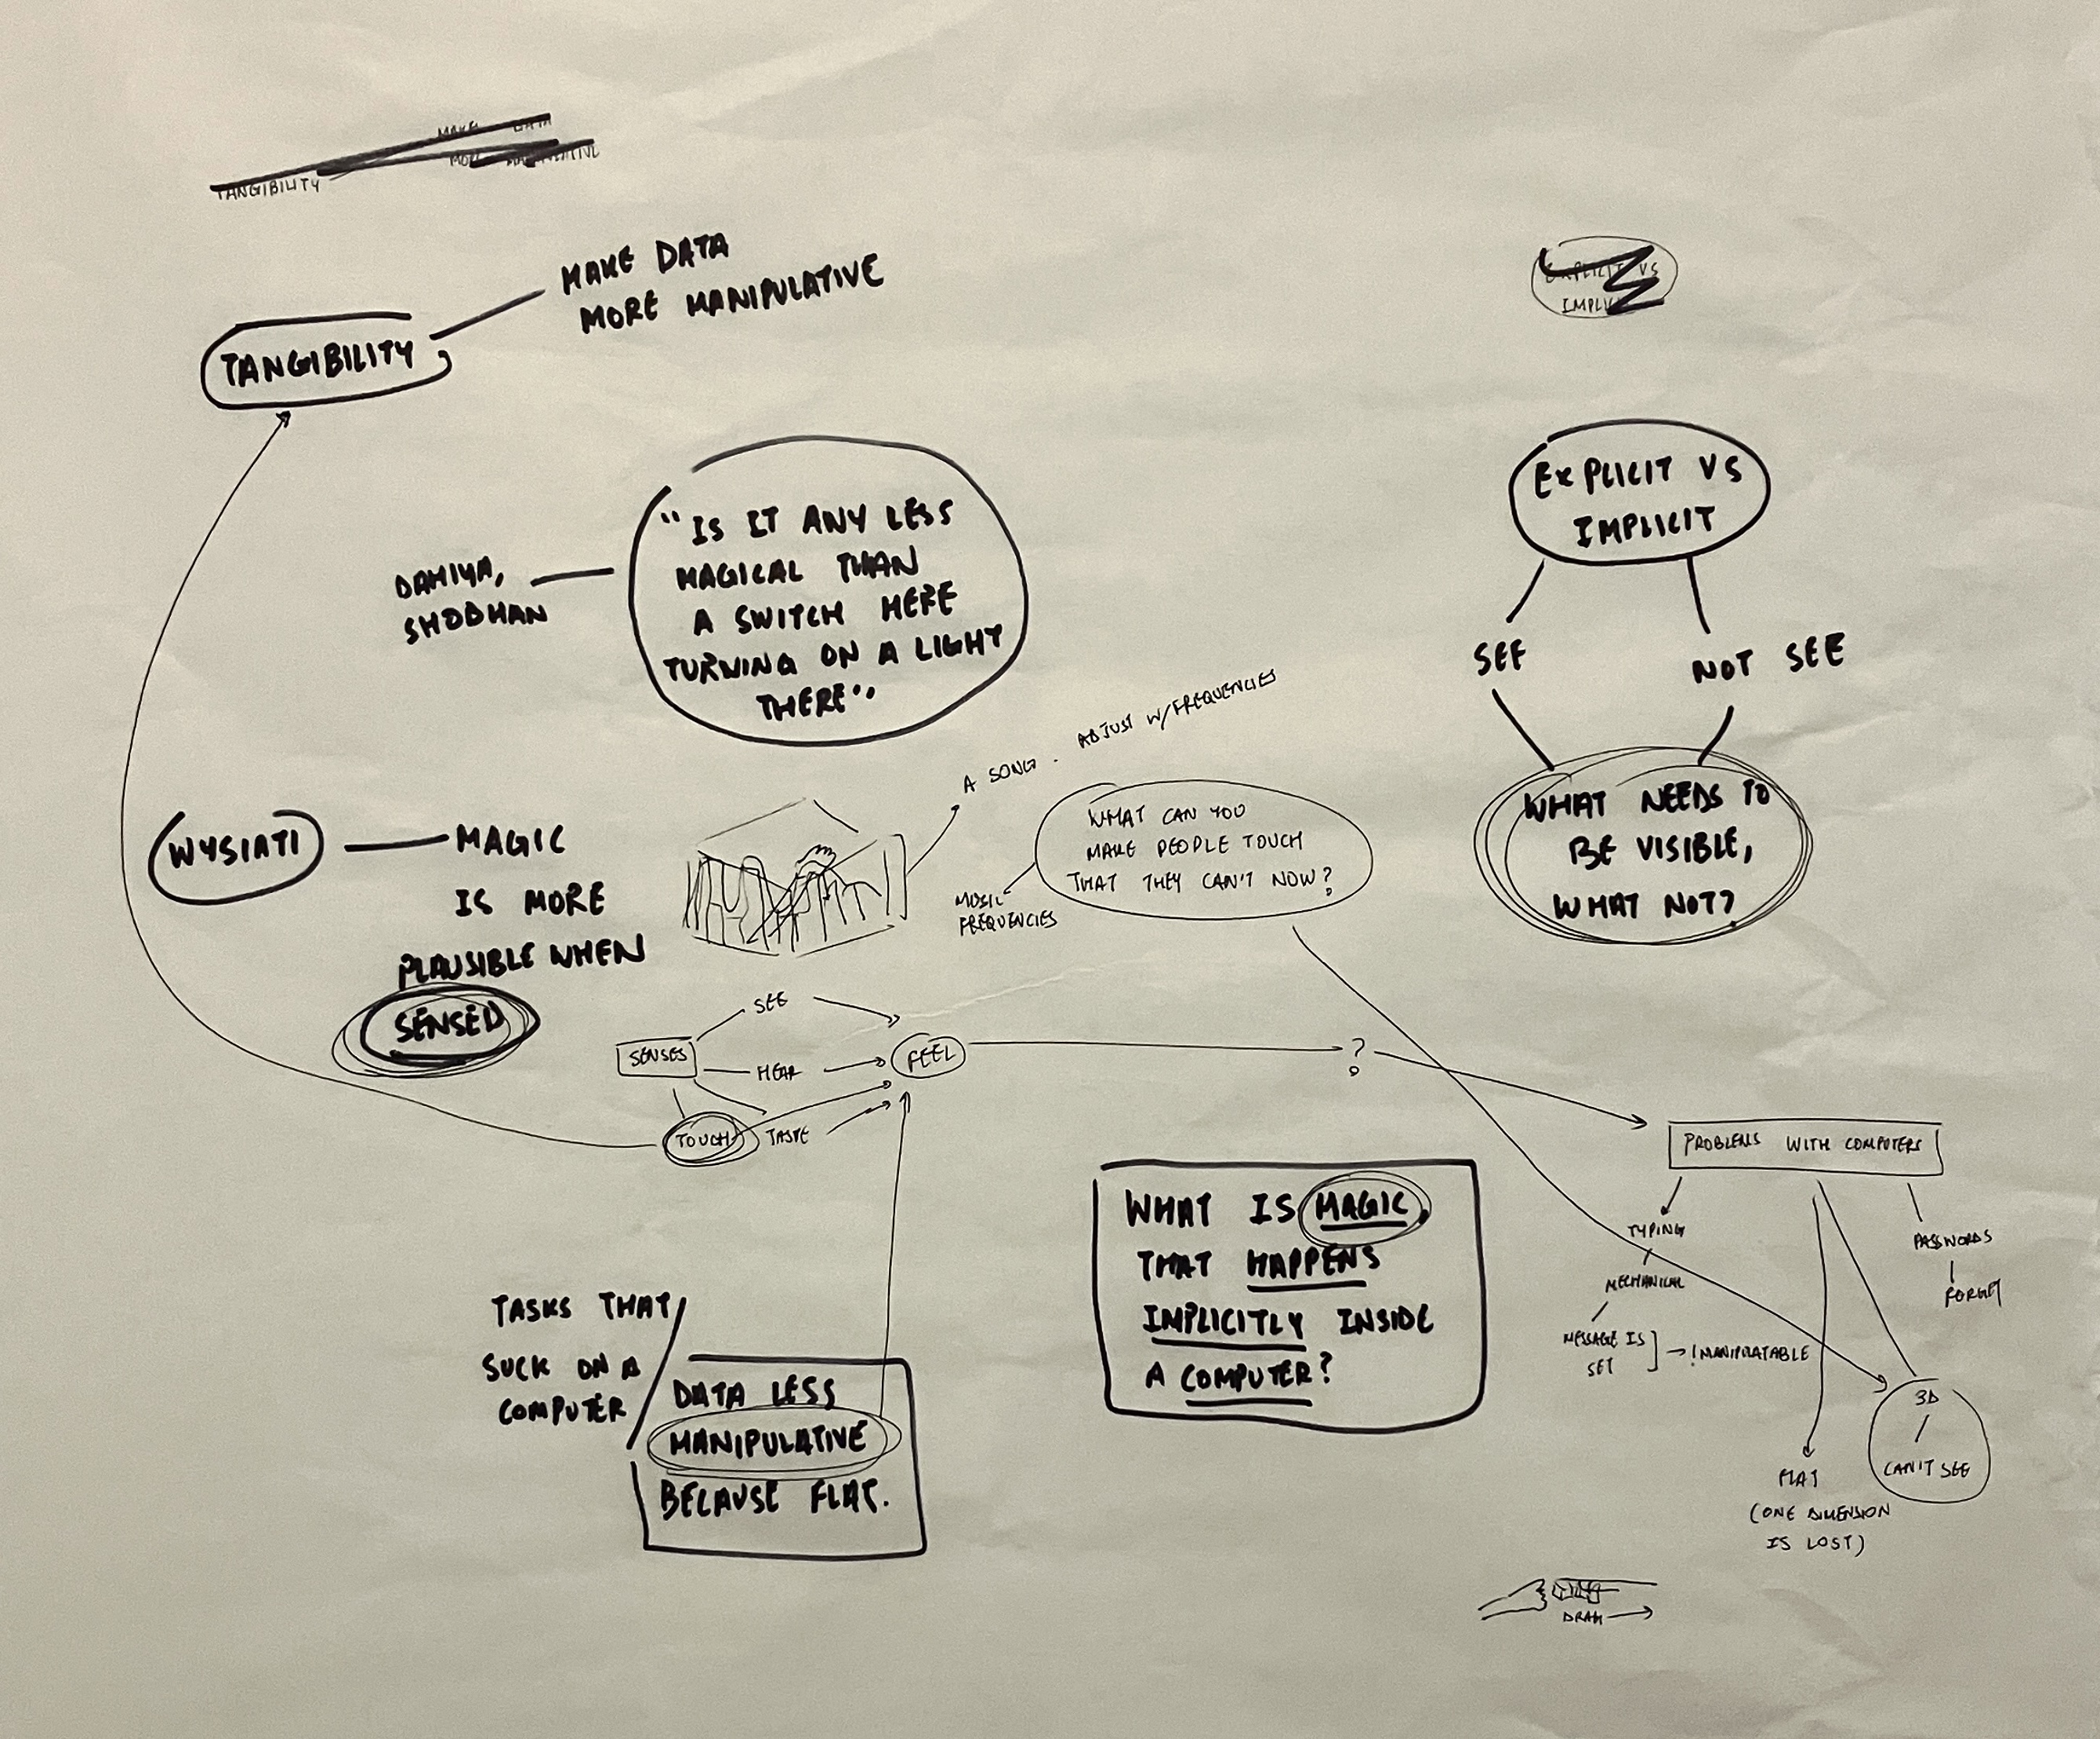 MAKE DATA
MORE
TANGIBILITY
MAKE DATA
MORE MANIPULATIVE
TANGIBILITY
EXPLICIT VS
IMPLICIT
EXPLICIT VS
IMPLICIT
SEE
NOT SEE
WHAT NEEDS TO
BE VISIBLE,
WHAT NOT?
DAHIYA,
SHOBHAN
"IS IT ANY LESS
MAGICAL THAN
A SWITCH HERE
TURNING ON A LIGHT
THERE"
A SONG. ADJUST W/FREQUENCIES
WYSIATI
MAGIC
IS MORE
PLAUSIBLE WHEN
SENSED
WHAT CAN YOU
MAKE PEOPLE TOUCH
THAT THEY CAN'T NOW?
MUSIC
FREQUENCIES
SENSES
SEE
HEAR
TOUCH
TASTE
FEEL
?
PROBLEMS WITH COMPUTERS
TYPING
MECHANICAL
MESSAGE IS
SET
→ !MANIPULATABLE
PASSWORDS
FORGET
3D
CAN'T SEE
FLAT
(ONE DIMENSION
IS LOST)
WHAT IS MAGIC,
THAT HAPPENS
IMPLICITLY INSIDE
A COMPUTER?
TASKS THAT
SUCK ON A
COMPUTER
DATA LESS
MANIPULATIVE
BECAUSE FLAT.
DRAG